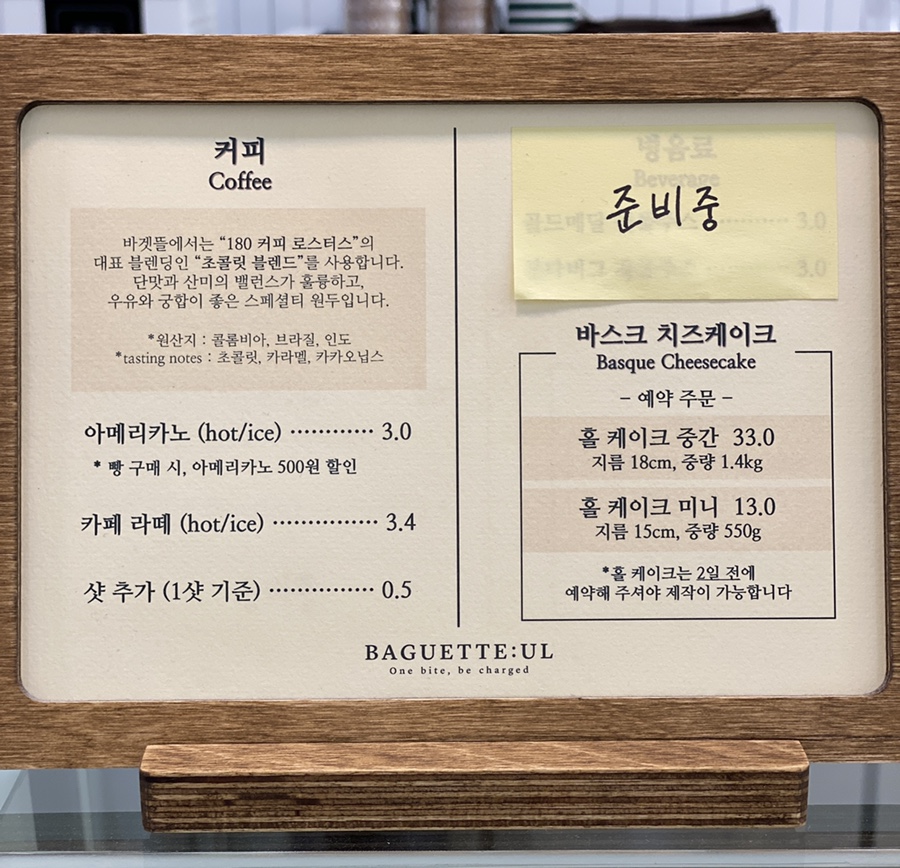 커피
Coffee
바겟뜰에서는 “180 커피 로스터스”의
대표 블렌딩인 “초콜릿 블렌드”를 사용합니다.
단맛과 산미의 밸런스가 훌륭하고,
우유와 궁합이 좋은 스페셜티 원두입니다.
*원산지 : 콜롬비아, 브라질, 인도
*tasting notes : 초콜릿, 카라멜, 카카오닙스
아메리카노 (hot/ice) ············ 3.0
* 빵 구매 시, 아메리카노 500원 할인
카페 라떼 (hot/ice) ··············· 3.4
샷 추가 (1샷 기준) ··············· 0.5
병음료
Beverage
준비중
골드메달 ········· 3.0
3.0
바스크 치즈케이크
Basque Cheesecake
– 예약 주문 –
홀 케이크 중간 33.0
지름 18cm, 중량 1.4kg
홀 케이크 미니 13.0
지름 15cm, 중량 550g
*홀 케이크는 2일 전에
예약해 주셔야 제작이 가능합니다
BAGUETTE:UL
One bite, be charged